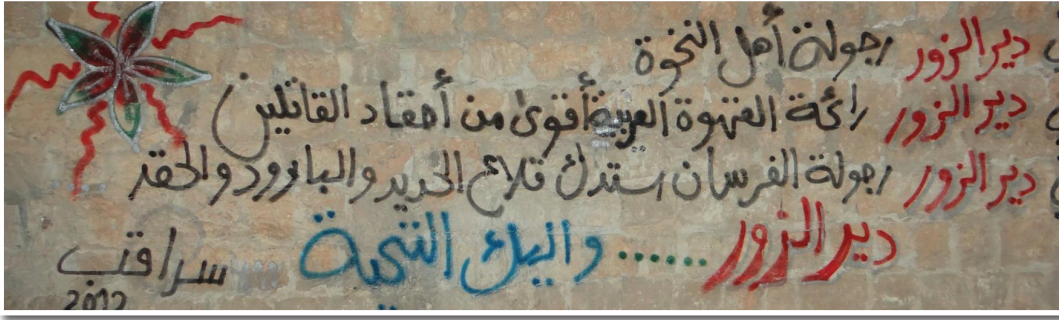 دير الزور رجولة أهل النخوة
دير الزور رائحة القهوة العربية أقوى من أحقاد القاتلين
دير الزور رجولة الفرسان ستدك قلاع الحديد والبارود والحقد
دير الزور ...... واليك التحية
سراقب
2012